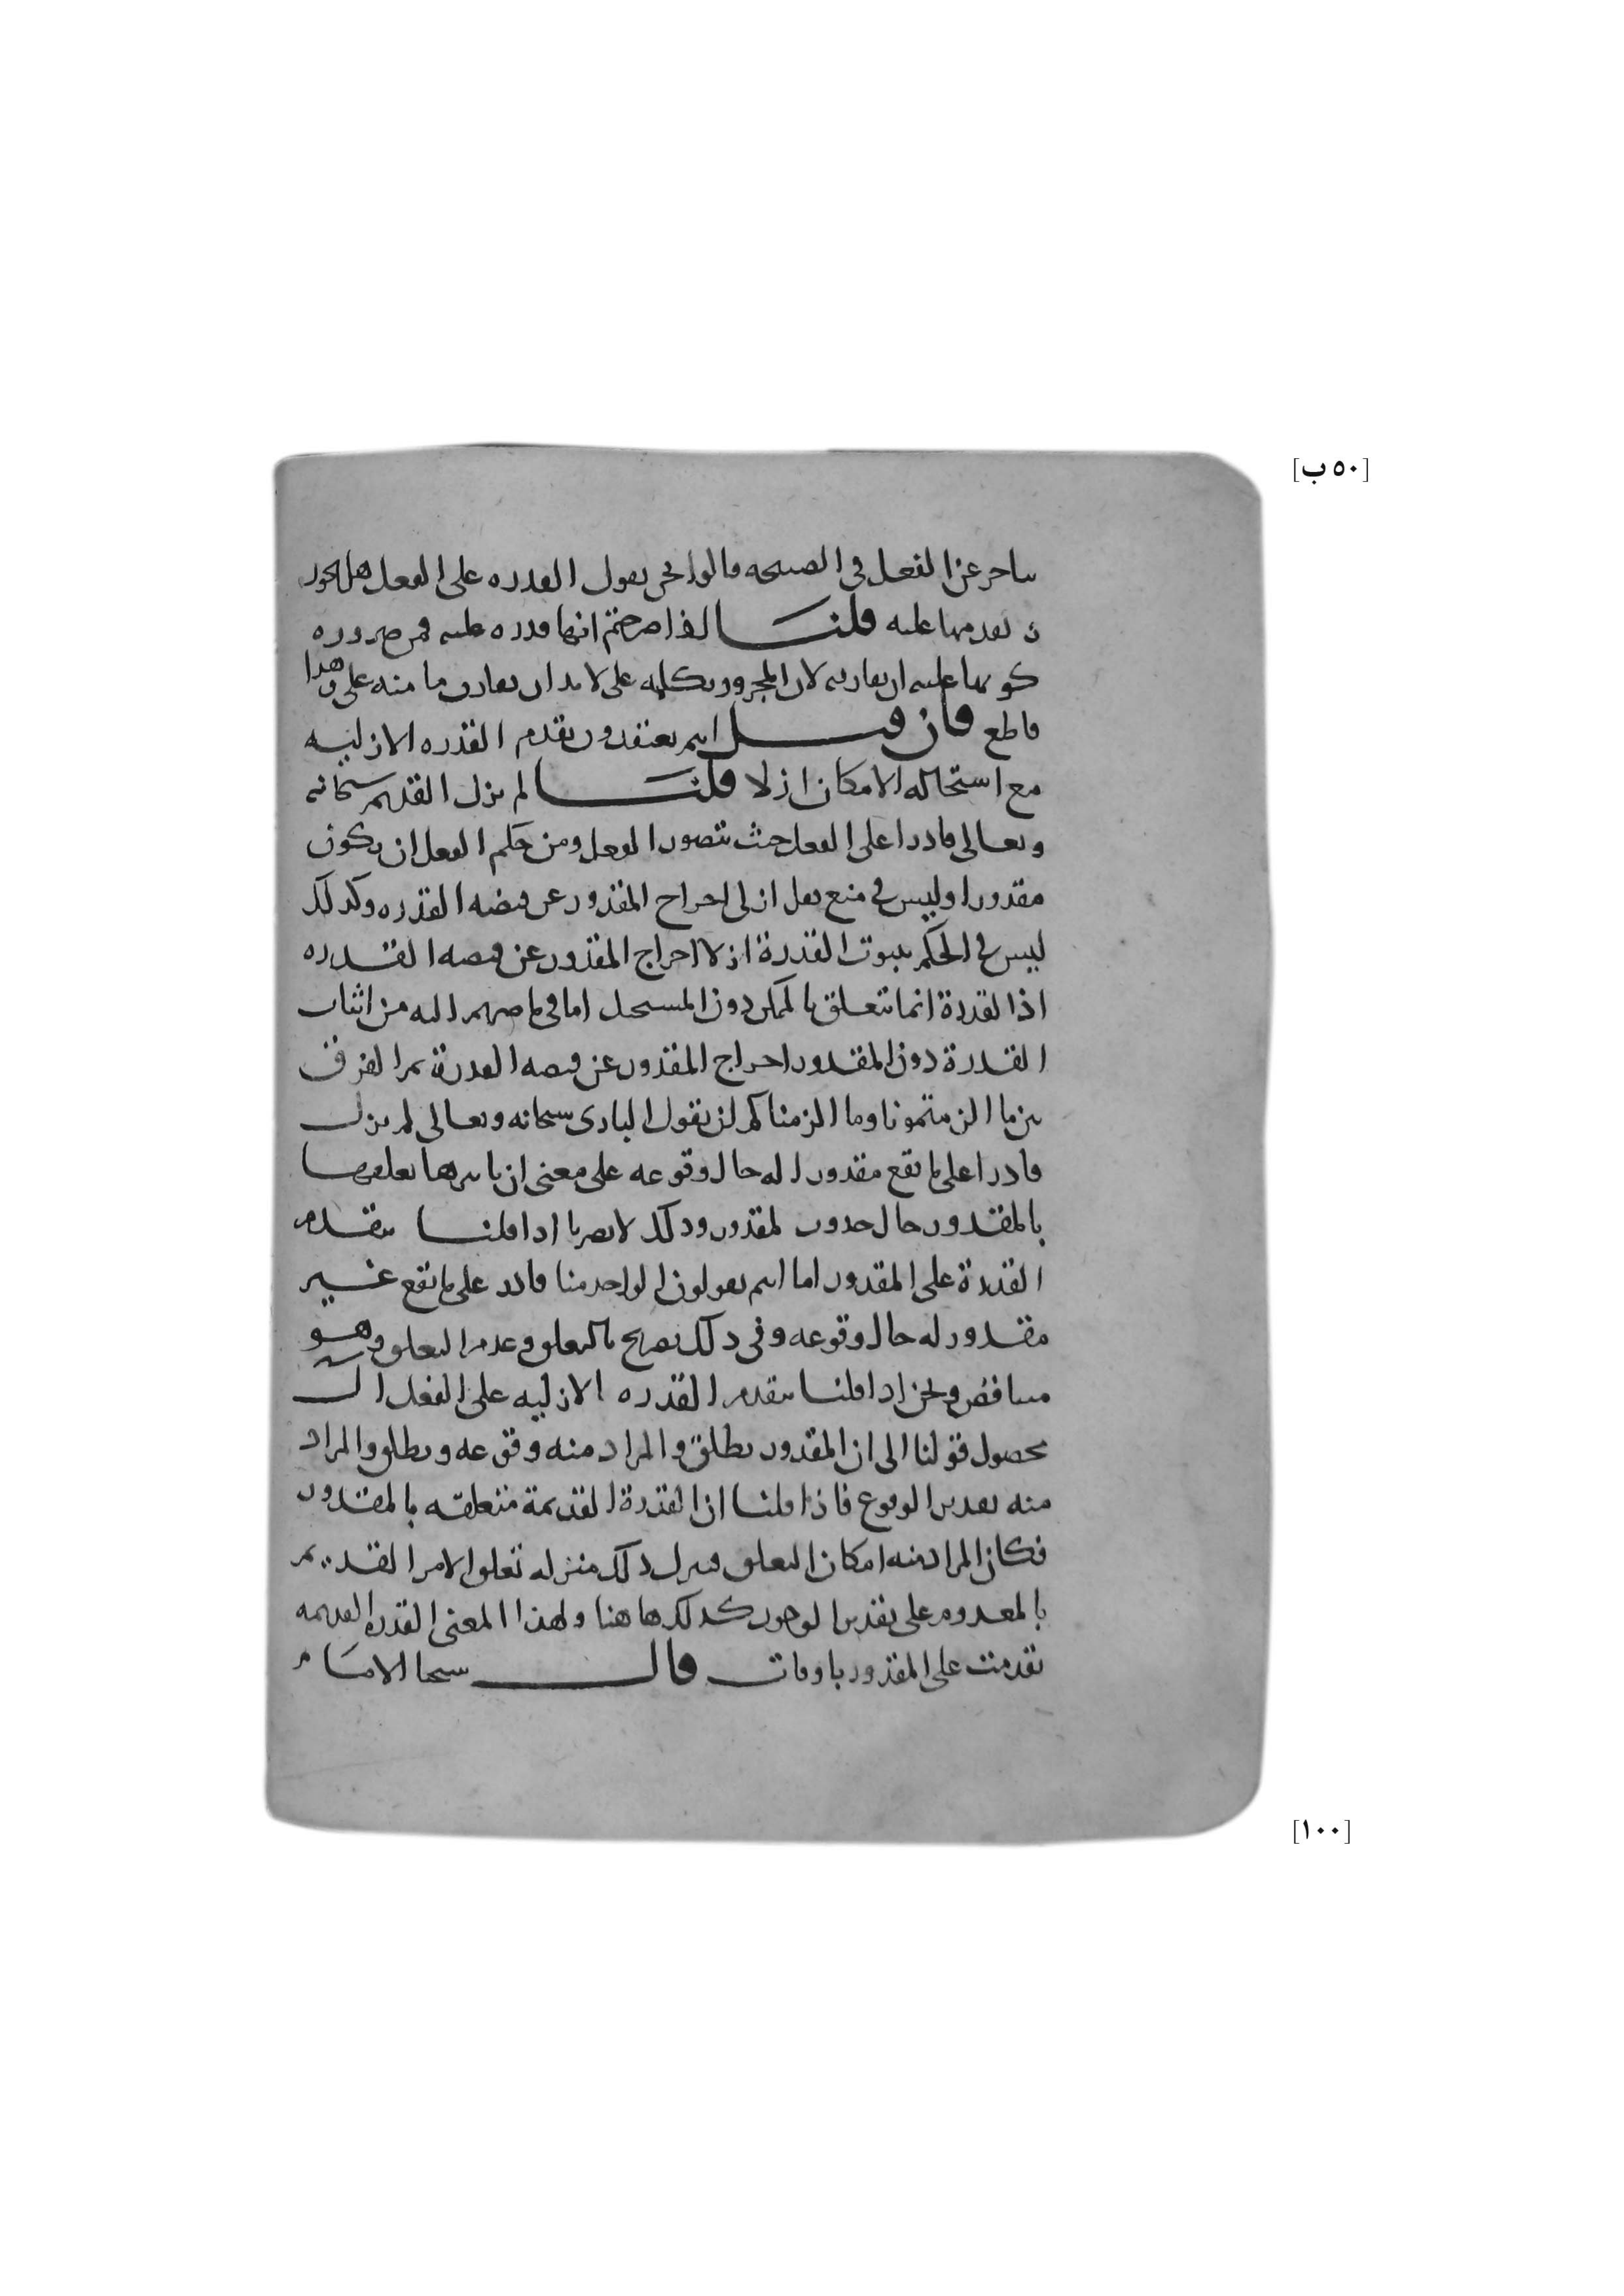 [٥٠ ب]
ساحر عن الفعل في الصحه قالوا نحن نقول القدره على الفعل هل يجوز
ن تقدمها عليه قلنا اذا صرحتم انها قدره عليه فمن ضروره
كونها عليه ان تقارنه لان المجرور بكلمه على لا بد ان يقارن ما منه على وهذا
قاطع فان قيل انتم تعتقدون تقدم القدره الازليه
مع استحاله الامكان ازلا قلنا لم يزل القديم سبحانه
وتعالى قادرا على الفعل حيث يتصور الفعل ومن حكم الفعل ان يكون
مقدورا وليس في منع فعل ازلي اخراج المقدور عن قبضه القدره وكذلك
ليس في الحكم بثبوت القدرة ازلا اخراج المقدور عن قبضه القدره
اذ القدرة انما تتعلق بالممكن دون المستحيل اما في ما صرتم اليه من اثبات
القدرة دون المقدور اخراج المقدور عن قبضه القدرة ثم الفرق
بين ما الزمتمونا وما الزمناكم ان نقول البارى سبحانه وتعالى لم يزل
قادرا على ما يقع مقدورا له حال وقوعه على معنى ان تاثيرها تعلقها
بالمقدور حال حدوث المقدور وذلك لا يضرنا اذا قلنا بتقدم
القدرة على المقدور اما انتم تقولون الواحد منا قادر على ما يقع غير
مقدور له حال وقوعه وفي ذلك تصريح بالتعلق وعدم التعلق وهو
متناقض ونحن اذا قلنا بتقدم القدره الازليه على الفعل ال
محصول قولنا الى ان المقدور يطلق والمراد منه وقوعه ويطلق والمراد
منه تقدير الوقوع فاذا قلنا ان القدرة القديمة متعلقه بالمقدور
فكان المراد منه امكان التعلق فنزل ذلك منزله تعلق الامر القديم
بالمعدوم على تقدير الوجود كذلك هاهنا ولهذا المعنى القدره القديمه
تقدمت على المقدور باوقات قال شيخنا الامام
[١٠٠]